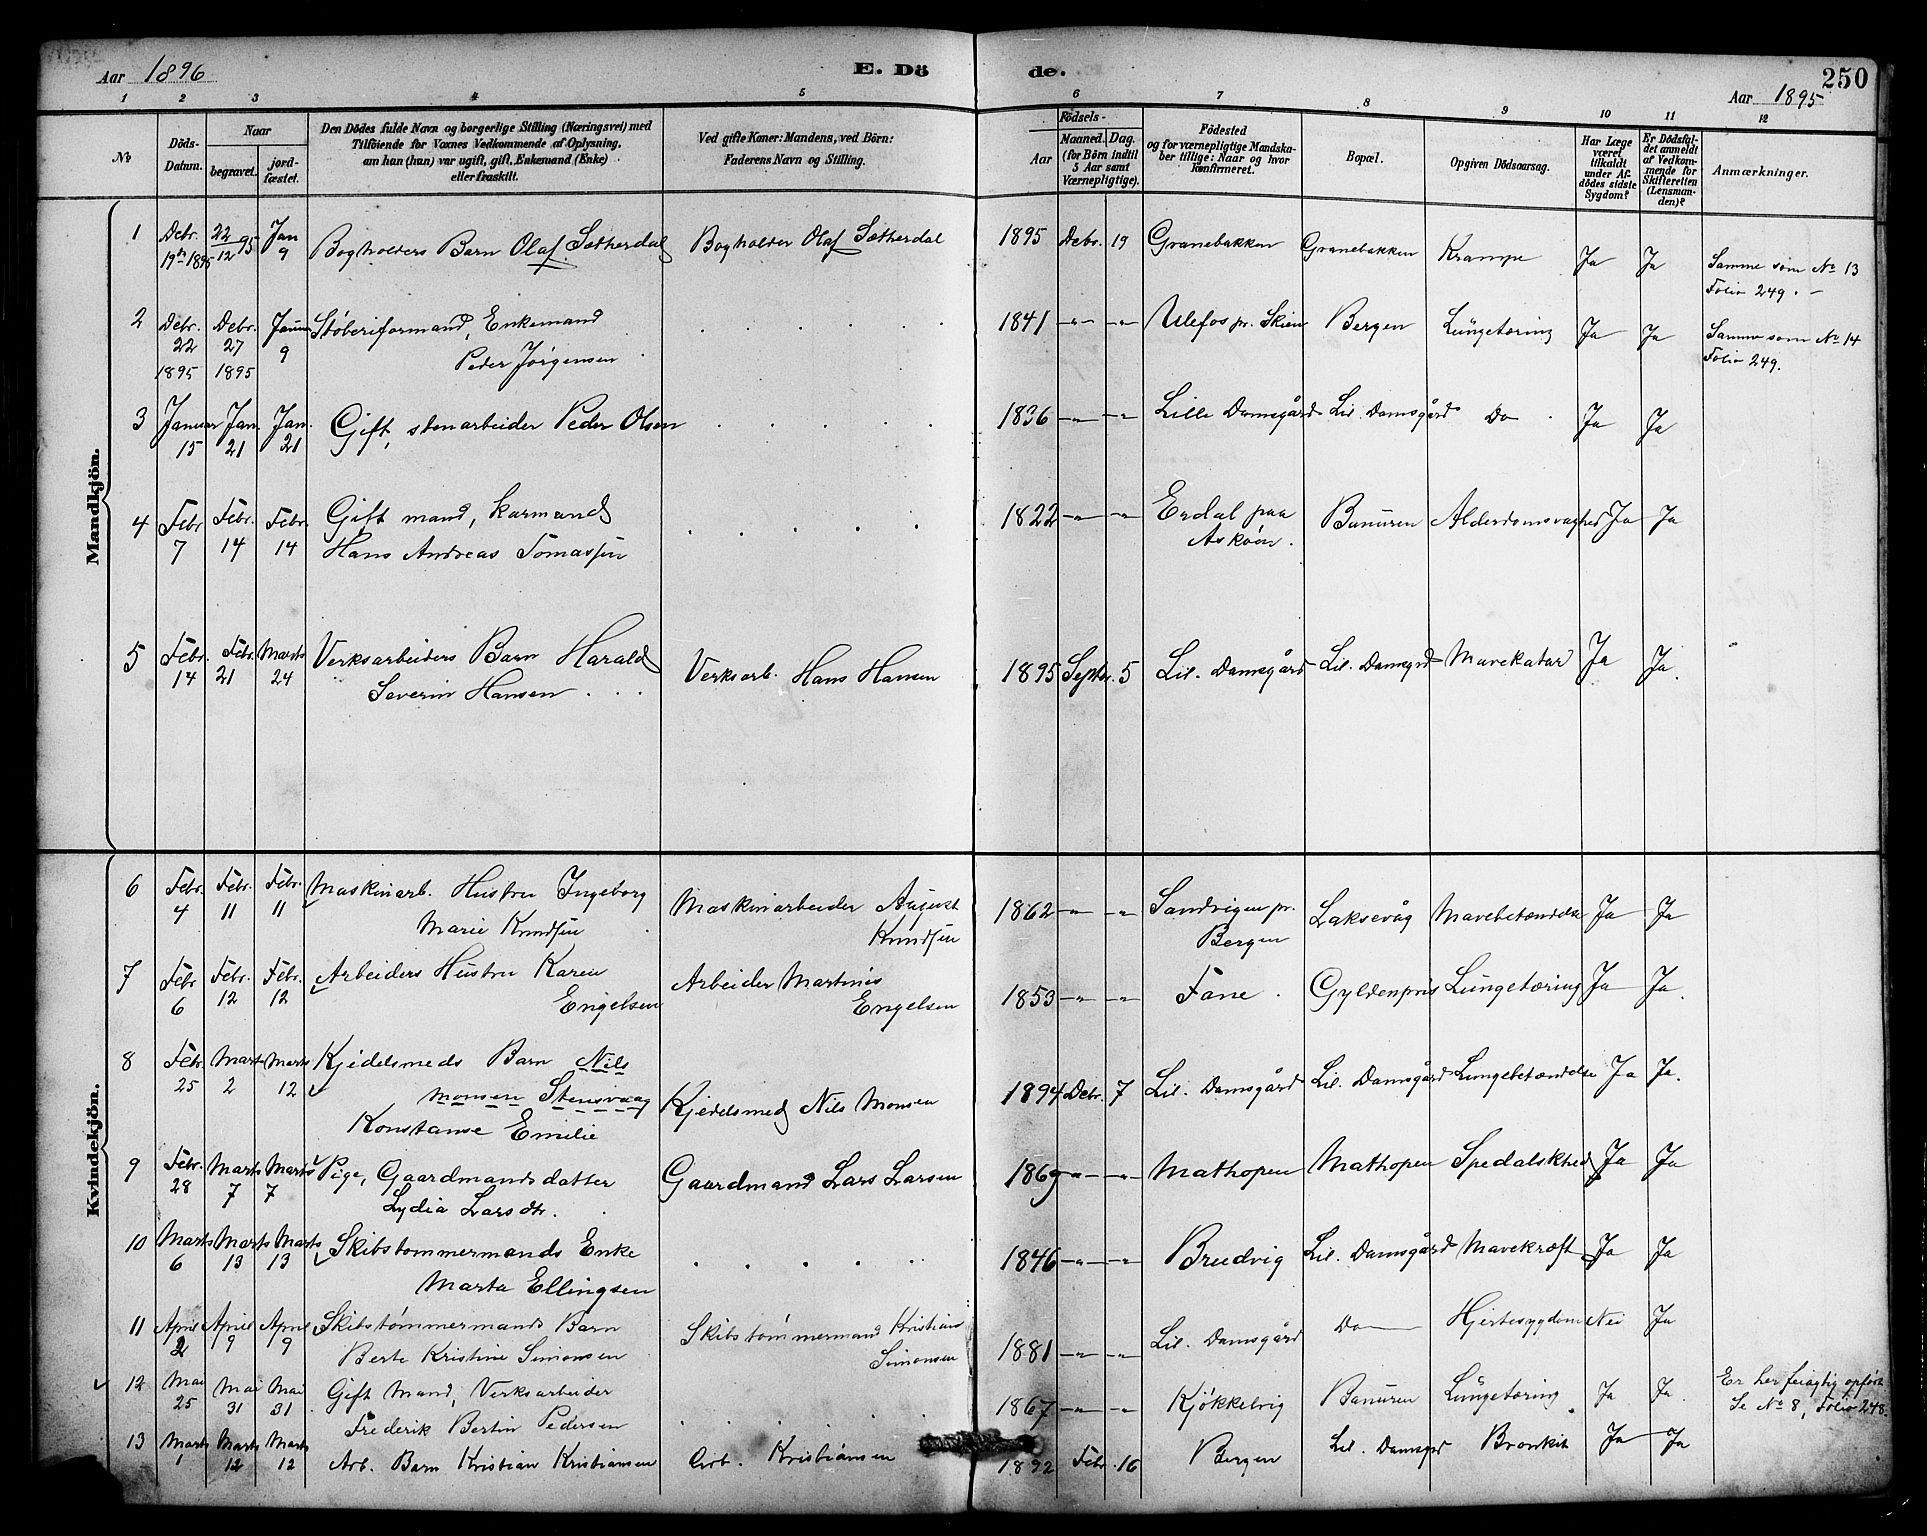 Aar 1896 E. Dö de. Aar 1895 250
1 2 3 4 5 6 7 8 9 10 11 12
No
Döds-Datum.
Naar begravet. jordfæstet.
Den Dödes fulde Navn og borgerlige Stilling (Næringsvei) med
Tilföiende for Voxnes Vedkommende af Oplysning,
om han (hun) var ugift, gift, Enkemand (Enke)
eller fraskilt.
Ved gifte Koner: Mandens, ved Börn:
Faderens Navn og Stilling.
Födsels-
Aar Maaned. Dag.
(for Börn indtil
5 Aar samt
Værnepligtige).
Födested
og for værnepligtige Mandska-
ber tillige: Naar og hvor
Konfirmeret.
Bopæl.
Opgiven Dödsaarsag.
Har Læge
været
tilkaldt
under Af-
dödes sidste
Sygdom?
Er Dödsfal-
det anmeldt
af Vedkom-
mende for
Skifteretten
(Lensman-
den)?
Anmærkninger.
Mandkjön.
1 Debr. 19de 1895 22/12 95 Jan 9 Bogholders Barn Olaf Sætherdal Bogholder Olaf Sætherdal 1895 Debr. 19 Granebakken Granebakken Krampe Ja Ja Samme som No 13
Folio 249. —
2 Debr. 22 1895 Debr. 27 1895 Januar 9 Støberiformand, Enkemand
Peder Jørgensen 1841 —"— —"— Ulefos pr. Skien Bergen Lungetæring Ja Ja Samme som No 14
Folio 249.
3 Januar 15 Jan. 21 Jan. 21 Gift, stenarbeider Peder Olsen 1836 —"— —"— Lille Damsgård Lil. Damsgård Do Ja Ja
4 Febr 7 Febr. 14 Febr. 14 Gift mand, karmand
Hans Andreas Tomassen 1822 —"— —"— Erdal paa
Askøen. Banuren Alderdomsvaghed Ja Ja
5 Febr. 14 Febr. 21 Marts 24 Verksarbeiders Barn Harald
Severin Hansen Verksarb. Hans Hansen 1895 Septbr. 5 Lil. Damsgård Lil. Damsgrd Mavekatar Ja Ja.
Kvindekjön.
6 Febr. 4 Febr. 11 Febr. 11 Maskinarb. Hustru Ingeborg
Marie Knudsen Maskinarbeider August
Knudsen 1862 —"— —"— Sandvigen pr.
Bergen Laksevåg Mavebetændelse Ja Ja
7 Febr 6 Febr. 12 Febr. 12 Arbeiders Hustru Karen
Engelsen Arbeider Martinis
Engelsen 1853 —"— —"— Fane. Gyldenpris Lungetæring Ja Ja.
8 Febr. 25 Marts 2 Marts 12 Kjedelsmeds Barn Nils
Monsen Stensvaag
Konstanse Emilie Kjedelsmed Nils Monsen 1894 Debr. 7 Lil. Damsgård Lil. Damsgård Lungebetændelse Ja Ja.
9 Febr. 28 Marts 7 Marts 7 Pige, Gaardmandsdatter
Lydia Larsdtr. Gaardmand Lars Larsen 1869 —"— —"— Mathopen Mathopen Spedalskhed Ja Ja
10 Marts 6 Marts 13 Marts 13 Skibstømmermands Enke
Marta Ellingsen 1846 —"— —"— Brudvig Lil. Damsgård Mavekræft Ja Ja
11 April 2 April 9 April 9 Skibstømmermands Barn
Berte Kristine Simonsen Skibstømmermand Kristians
Simonsen 1881 —"— —"— Lil. Damsgård Do Hjertesygdom Nei Ja
12 Mai 25 Mai 31 Mai 31 Gift Mand, Verksarbeider
Frederik Bertin Pedersen 1867 —"— —"— Kjøkkelvig Banuren Lungetæring Ja Ja. Er her feiagtig opført
Se No 8, Folio 248.
13 Marts 1 Marts 12 Marts 12 Arb. Barn Kristian Kristiansen Arb. Kristiansen 1892 Febr. 16 Bergen Lil. Damsgrd Bronkit Ja Ja